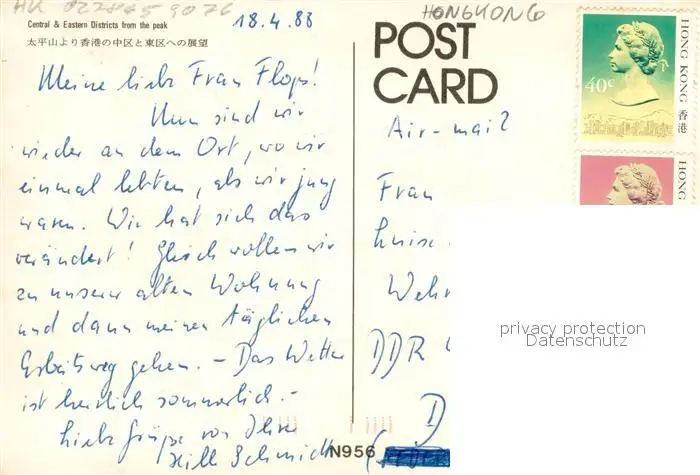 HK 0228459076
Central & Eastern Districts from the peak
太平山より香港の中区と東区への展望
18.4.88
HONGKONG
POST
CARD
40c
HONG KONG 香港
HONG
Meine liebe Frau Flops!
Nun sind wir
wieder an dem Ort, wo wir
einmal lebten, als wir jung
waren. Wie hat sich das
verändert! Gleich wollen wir
zu unserer alten Wohnung
und dann meinen täglichen
Arbeitsweg gehen. – Das Wetter
ist herrlich sommerlich. –
Liebe Grüße von Ihrer
Hille Schmidt
Air-mail
Frau
Luise
Wehr
DDR
D
N956
privacy protection
Datenschutz